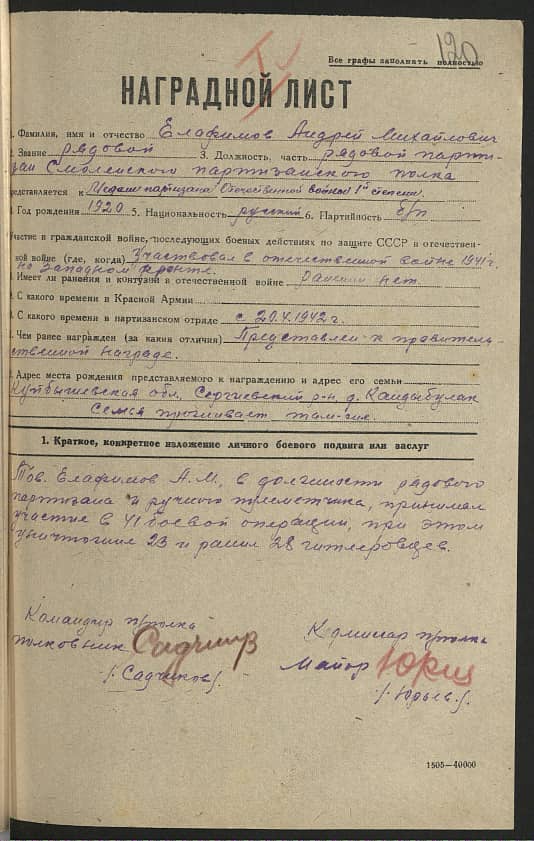 120
Все графы заполнять полностью
НАГРАДНОЙ ЛИСТ
1. Фамилия, имя и отчество Елафимов Андрей Михайлович
2. Звание рядовой 3. Должность, часть рядовой парти-
зан Смоленского партизанского полка
редставляется к Медали партизана Отечественной войной 1й степени.
Год рождения 1920 5. Национальность русский 6. Партийность б/п
Участие в гражданской войне, последующих боевых действиях по защите СССР в отечествен-
ной войне (где, когда) Участвовал в отечественной войне 1941 г.
на Западном фронте.
Имеет ли ранения и контузии в отечественной войне ранений нет.
С какого времени в Красной Армии
С какого времени в партизанском отряде с 20.4.1942 г.
Чем ранее награжден (за какия отличия) Представлен к правитель-
ственной награде.
Адрес места рождения представляемого к награждению и адрес его семьи
Куйбышевская обл., Сергиевский р-н, д. Кандыбулак
Семья проживает там-же.
1. Краткое, конкретное изложение личного боевого подвига или заслуг
Тов. Елафимов А.М., в должности рядового
партизана и ручного пулеметчика, принимал
участие в 41 боевой операции, при этом
уничтожил 23 и ранил 28 гитлеровцев.
Командир п/полка
полковник Садчиков
/. Садчиков/.
Комиссар п/полка
Майор Юрьев
/. Юрьев./.
1505—40000